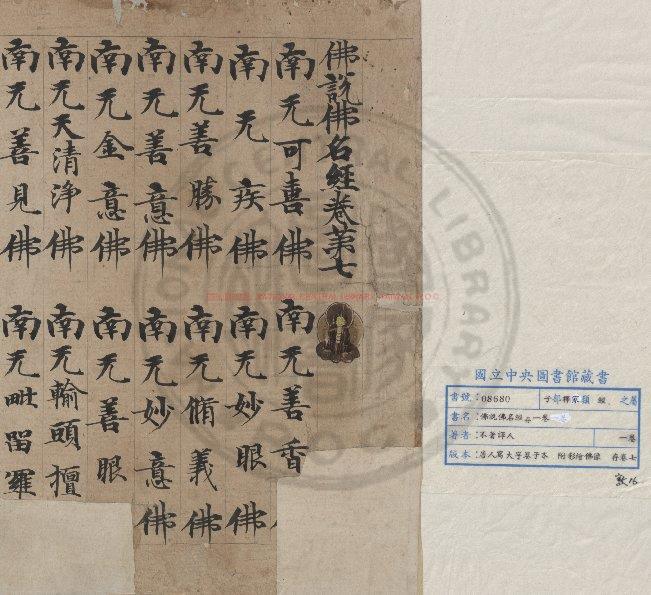 佛說佛名經卷第七
南无可喜佛 南无善香
南无疾佛 南无妙眼佛
南无善勝佛 南无脩義佛
南无善意佛 南无妙意佛
南无金意佛 南无善眼
南无天清淨佛 南无輸頭檀
南无善見佛 南无毗留羅
國立中央圖書館藏書
書號:08680 子部釋家類 經 之屬
書名:佛說佛名經存一卷
著者:不著譯人 一卷
版本:唐人寫大字卷子本 附彩繪佛像 存卷七
NATIONAL CENTRAL LIBRARY